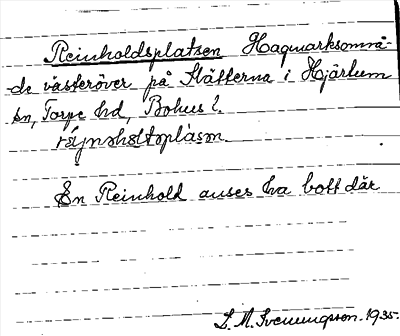 Reinholdsplatsen Hagmarksområ-
de västeröver på Slätterna i Hjärtum
sn, Torpe hd, Bohus l.
En Reinhold anses ha bott där
L. M. Svenungsson. 1935.